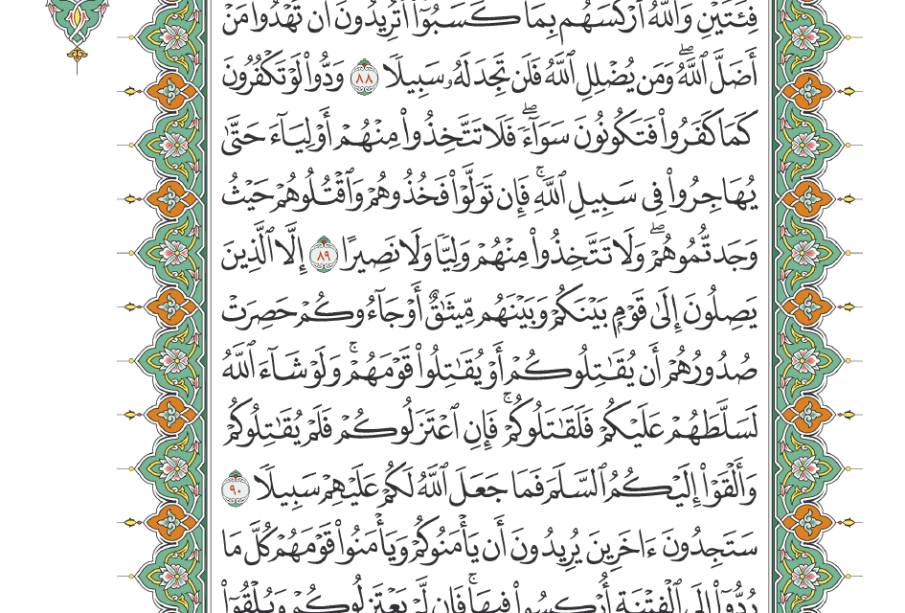 فِئَتَيْنِ وَٱللَّهُ أَرْكَسَهُم بِمَا كَسَبُوٓا۟ أَتُرِيدُونَ أَن تَهْدُوا۟ مَنْ
أَضَلَّ ٱللَّهُۖ وَمَن يُضْلِلِ ٱللَّهُ فَلَن تَجِدَ لَهُۥ سَبِيلًا ٨٨ وَدُّوا۟ لَوْ تَكْفُرُونَ
كَمَا كَفَرُوا۟ فَتَكُونُونَ سَوَآءًۖ فَلَا تَتَّخِذُوا۟ مِنْهُمْ أَوْلِيَآءَ حَتَّىٰ
يُهَاجِرُوا۟ فِى سَبِيلِ ٱللَّهِۚ فَإِن تَوَلَّوْا۟ فَخُذُوهُمْ وَٱقْتُلُوهُمْ حَيْثُ
وَجَدتُّمُوهُمْۖ وَلَا تَتَّخِذُوا۟ مِنْهُمْ وَلِيًّا وَلَا نَصِيرًا ٨٩ إِلَّا ٱلَّذِينَ
يَصِلُونَ إِلَىٰ قَوْمٍۭ بَيْنَكُمْ وَبَيْنَهُم مِّيثَـٰقٌ أَوْ جَآءُوكُمْ حَصِرَتْ
صُدُورُهُمْ أَن يُقَـٰتِلُوكُمْ أَوْ يُقَـٰتِلُوا۟ قَوْمَهُمْۚ وَلَوْ شَآءَ ٱللَّهُ
لَسَلَّطَهُمْ عَلَيْكُمْ فَلَقَـٰتَلُوكُمْۚ فَإِنِ ٱعْتَزَلُوكُمْ فَلَمْ يُقَـٰتِلُوكُمْ
وَأَلْقَوْا۟ إِلَيْكُمُ ٱلسَّلَمَ فَمَا جَعَلَ ٱللَّهُ لَكُمْ عَلَيْهِمْ سَبِيلًا ٩٠
سَتَجِدُونَ ءَاخَرِينَ يُرِيدُونَ أَن يَأْمَنُوكُمْ وَيَأْمَنُوا۟ قَوْمَهُمْ كُلَّ مَا
رُدُّوٓا۟ إِلَى ٱلْفِتْنَةِ أُرْكِسُوا۟ فِيهَاۚ فَإِن لَّمْ يَعْتَزِلُوكُمْ وَيُلْقُوٓا۟